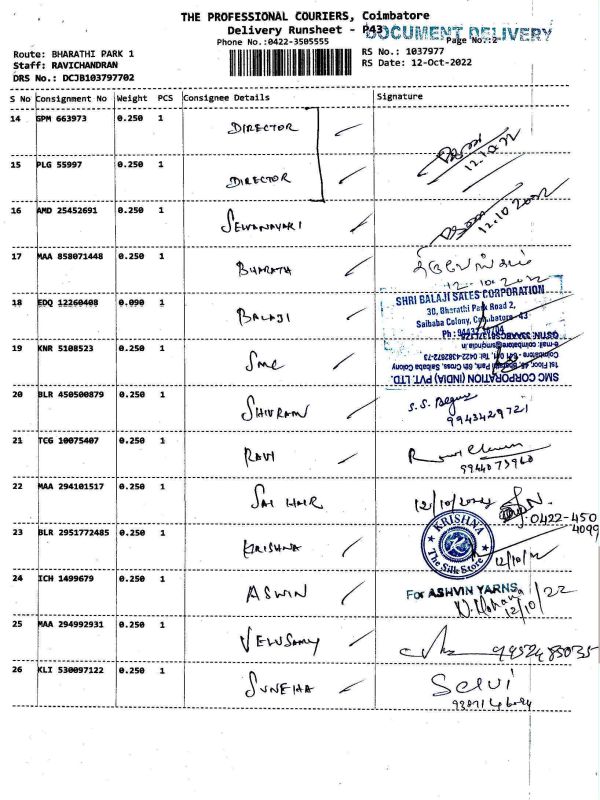 THE PROFESSIONAL COURIERS, Coimbatore
Delivery Runsheet - P43
DOCUMENT DELIVERY
Phone No.:0422-3505555
Page No.:2
Route: BHARATHI PARK 1
RS No.: 1037977
Staff: RAVICHANDRAN
RS Date: 12-Oct-2022
DRS No.: DCJB103797702
S No Consignment No Weight PCS Consignee Details Signature
14 GPM 663973 0.250 1 DIRECTOR
12.10.22
15 PLG 55997 0.250 1 DIRECTOR
16 AMD 25452691 0.250 1
12.10.2022
17 MAA 858071448 0.250 1 BHARATH
12.10.2022
18 EDQ 12260408 0.090 1 BALAJI
SHRI BALAJI SALES CORPORATION
30, Bharathi Park Road 2,
Saibaba Colony, Coimbatore-43
19 KNR 5108523 0.250 1 SMC
SMC CORPORATION (INDIA) PVT. LTD.
20 BLR 450500879 0.250 1 SHIVRAM
9943429721
21 TCG 10075407 0.250 1 RAVI
9944073960
22 MAA 294101517 0.250 1 SAI HAIR
12/10/2022
0422-450
4099
23 BLR 2951772485 0.250 1 KRISHNA
KRISHNA
The Silk Store
12/10/22
24 ICH 1499679 0.250 1 ASWIN
For ASHVIN YARNS
12/10/22
25 MAA 294992931 0.250 1 VELUSAMY
9952485035
26 KLI 530097122 0.250 1 SUNEHA
Selvi